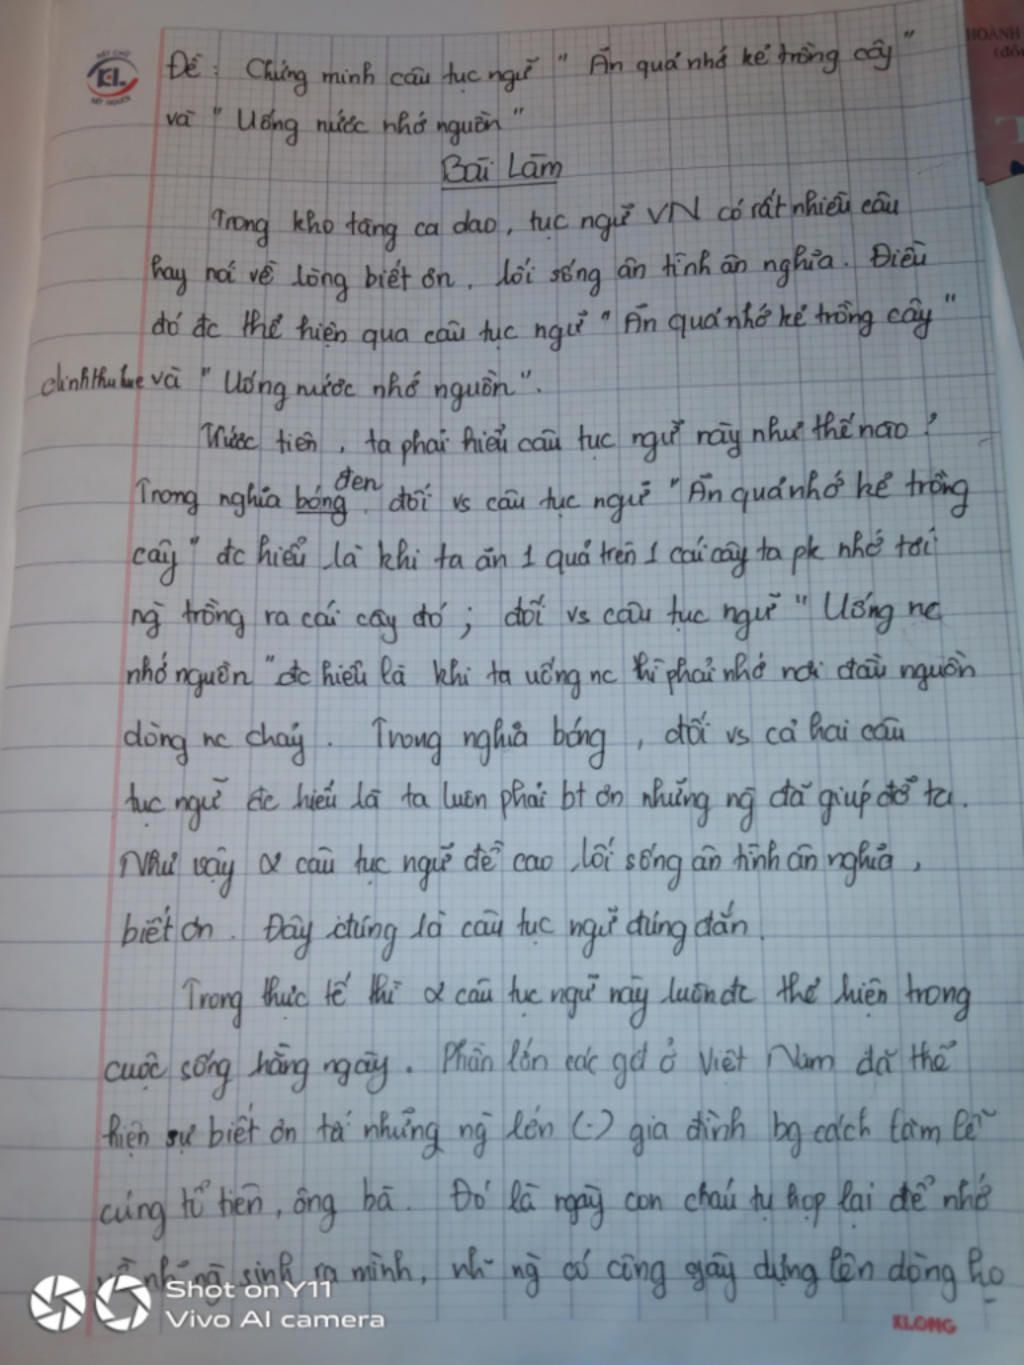 Đề : Chứng minh câu tục ngữ " Ăn quả nhớ kẻ trồng cây "
và " Uống nước nhớ nguồn "
Bài Làm
Trong kho tàng ca dao, tục ngữ VN có rất nhiều câu
hay nói về lòng biết ơn, lối sống ân tình ân nghĩa. Điều
đó đc thể hiện qua câu tục ngữ " Ăn quả nhớ kẻ trồng cây "
và " Uống nước nhớ nguồn ".
Trước tiên, ta phải hiểu câu tục ngữ này như thế nào ?
đen
Trong nghĩa bóng, đối vs câu tục ngữ " Ăn quả nhớ kẻ trồng
cây " đc hiểu là khi ta ăn 1 quả trên 1 cái cây ta pk nhớ tới
ng trồng ra cái cây đó ; đối vs câu tục ngữ " Uống nc
nhớ nguồn " đc hiểu là khi ta uống nc thì phải nhớ nơi đầu nguồn
dòng nc chảy. Trong nghĩa bóng, đối vs cả hai câu
tục ngữ đc hiểu là ta luôn phải bt ơn những ng đã giúp đỡ ta.
Như vậy 2 câu tục ngữ đề cao lối sống ân tình ân nghĩa,
biết ơn. Đây chúng là câu tục ngữ đúng đắn.
Trong thực tế thì 2 câu tục ngữ này luôn đc thể hiện trong
cuộc sống hằng ngày. Phần lớn các gđ ở Việt Nam đã thể
hiện sự biết ơn tới những ng lớn (-) gia đình bg cách làm lễ
cúng tổ tiên, ông bà. Đó là ngày con cháu tụ họp lại để nhớ
sinh ra mình, nh~ ng có công gây dựng lên dòng họ
KLONG
Shot on Y11
Vivo AI camera